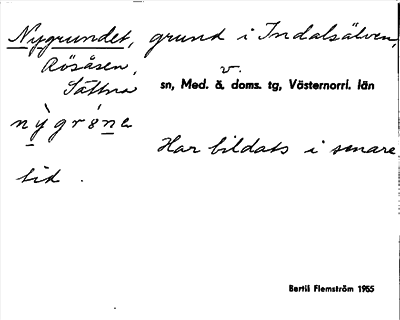 Nygrundet, grund i Indalsälven,
Rösåsen,
Sättna sn, Med. v. ä. doms. tg, Västernorrl. län
nỳgróne
Har bildats i senare
tid.
Bertil Flemström 1955